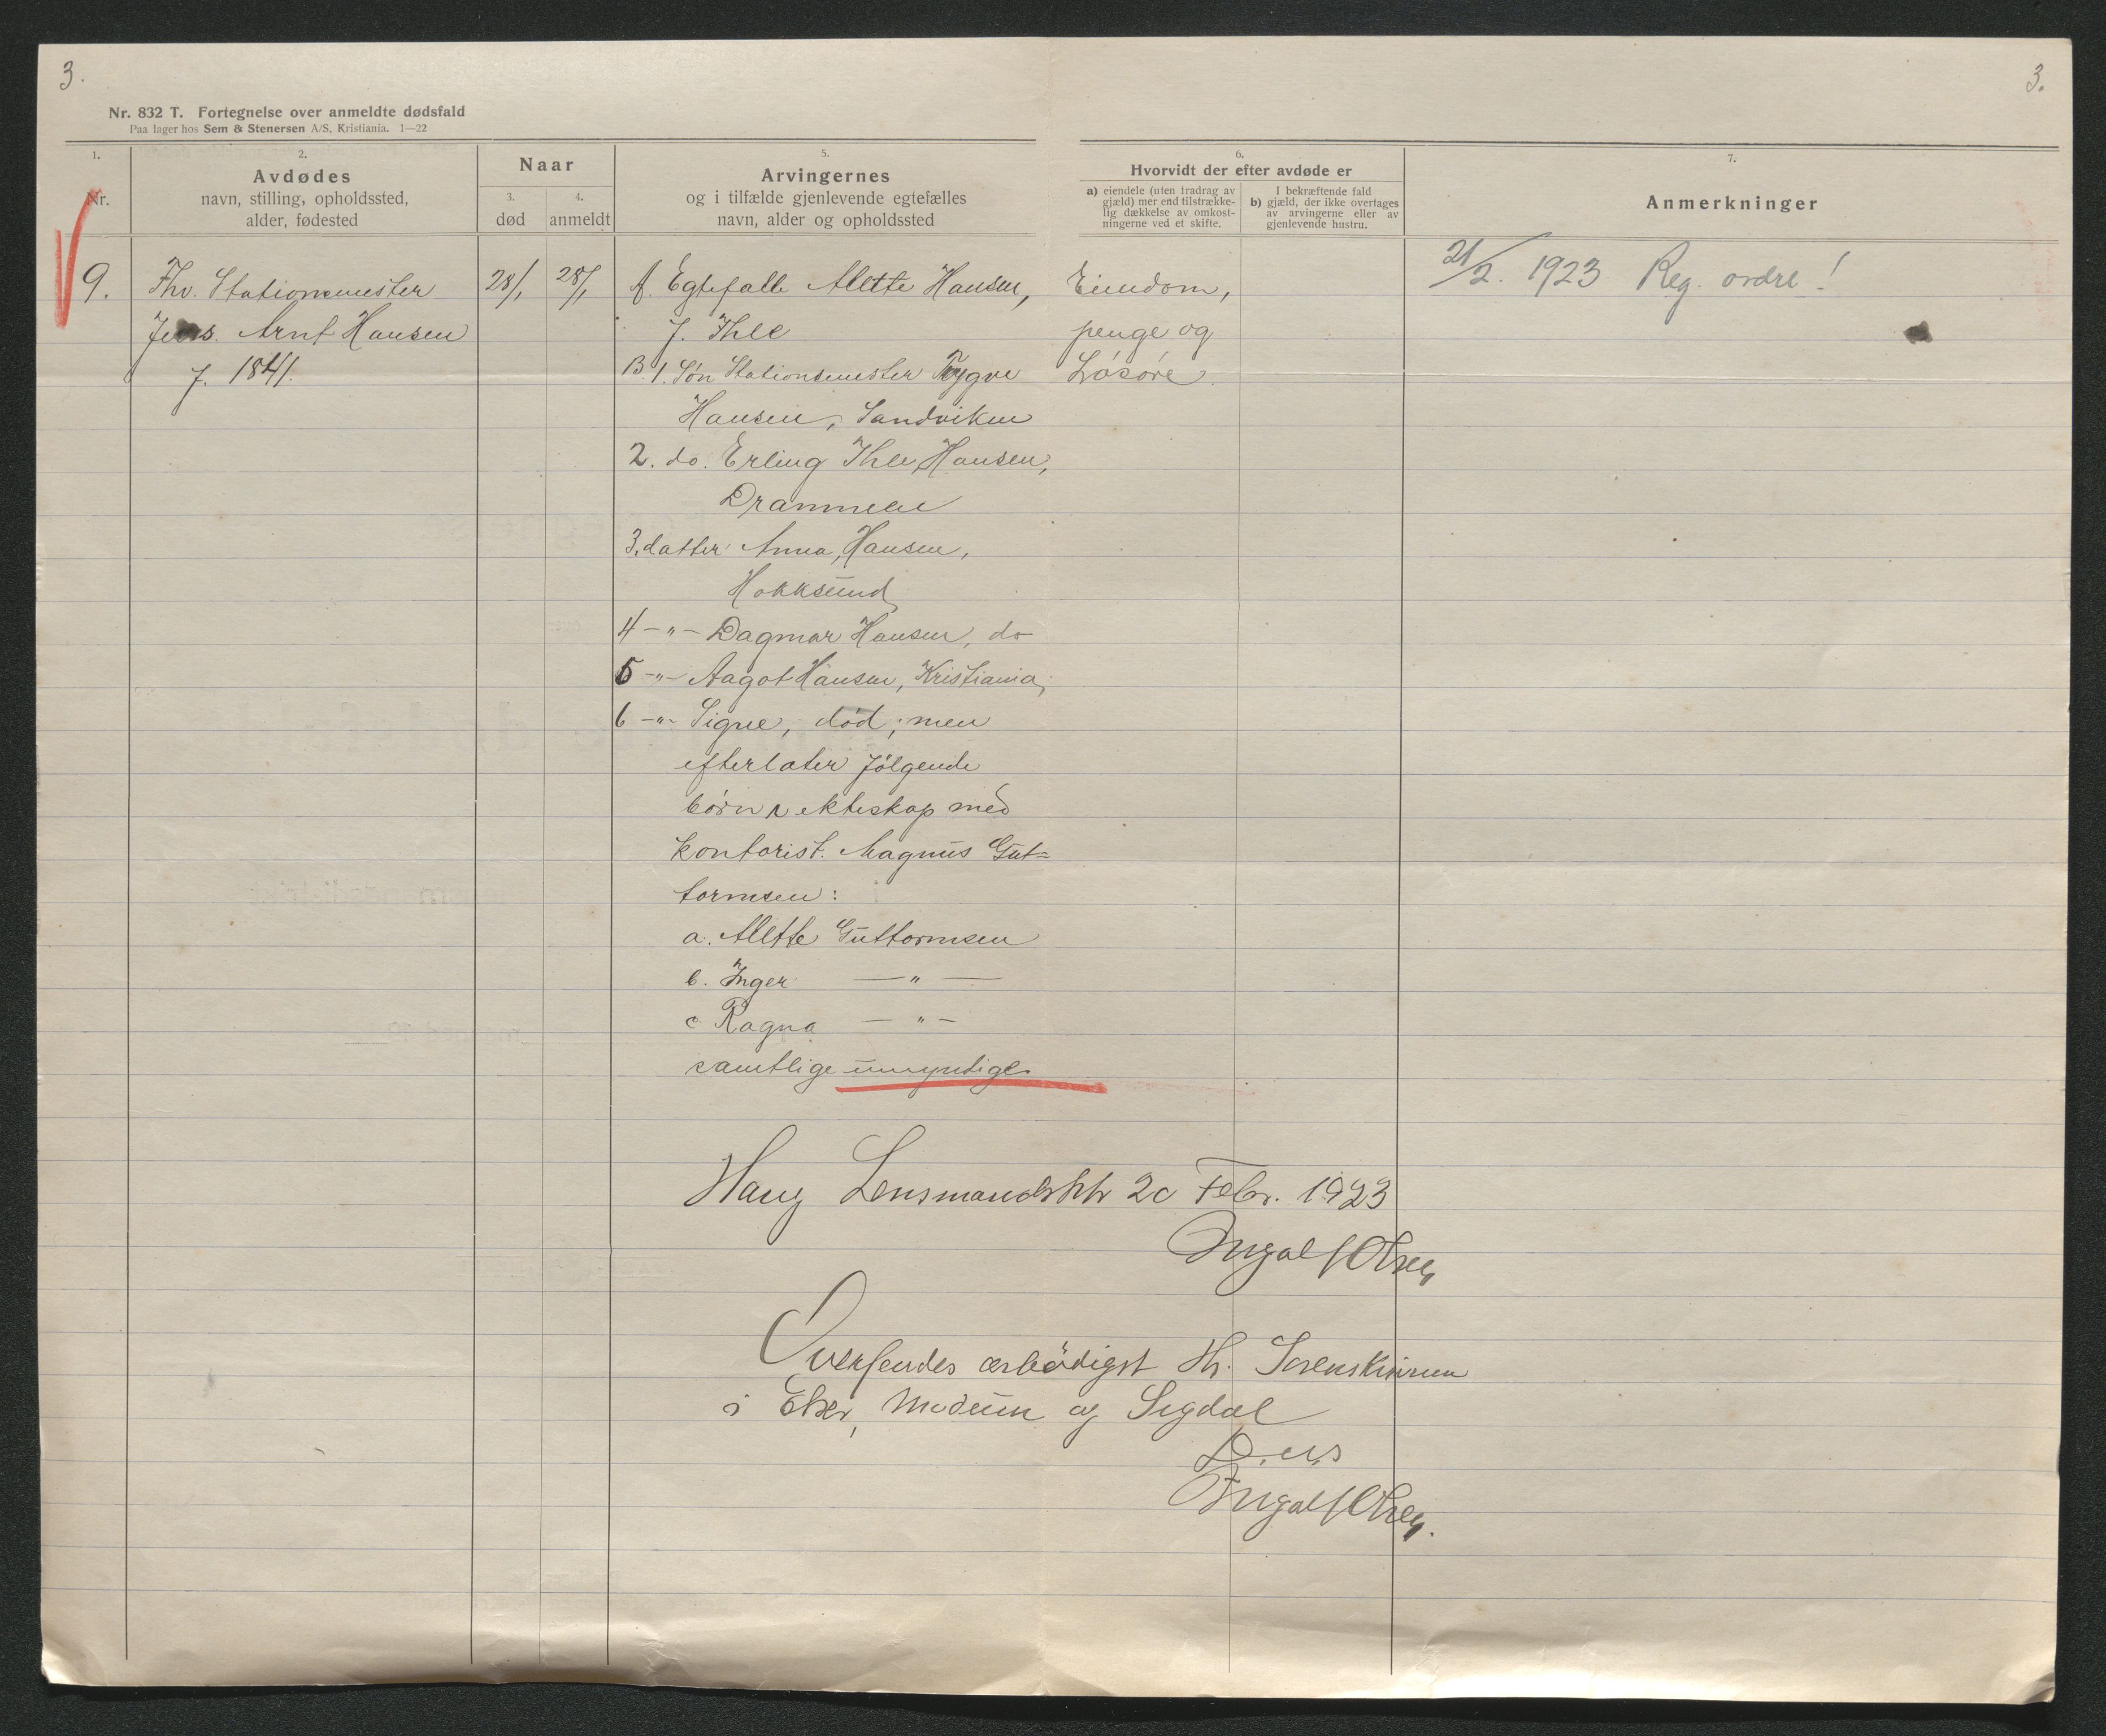 3.
3.
Nr. 832 T. Fortegnelse over anmeldte dødsfald
Paa lager hos Sem & Stenersen A/S, Kristiania. 1—22
1.
Nr.
2.
Avdødes
navn, stilling, opholdssted,
alder, fødested
Naar
3.
død
4.
anmeldt
5.
Arvingernes
og i tilfælde gjenlevende egtefælles
navn, alder og opholdssted
6.
Hvorvidt der efter avdøde er
a) eiendele (uten fradrag av
gjæld) mer end tilstrække-
lig dækkelse av omkost-
ningerne ved et skifte.
b) I bekræftende fald
gjæld, der ikke overtages
av arvingerne eller av
gjenlevende hustru.
7.
Anmerkninger
9.
Fhv. Stationsmester
Jens Arnt Hansen
f. 1841.
28/1
28/1
A. Egtefalle Alette Hansen,
f. Ihle
B 1. Søn Stationsmester Trygve
Hansen, Sandviken
2. do. Erling Ihle Hansen,
Drammen
3. datter Anna Hansen,
Hokksund
4 -"- Dagmar Hansen, do
5 -"- Aagot Hansen, Kristiania,
6 -"- Signe, død; men
efterlater følgende
børn i ekteskap med
kontorist. Magnus Gut=
tormsen:
a. Alette Guttormsen
b. Inger —"—
c Ragna —"—
samtlige umyndige
Eiendom,
penge og
Løsøre
21/2. 1923 Reg. ordre!
Haug Lensmandsktr 20 Febr. 1923
Ingolf Olsen
Oversendes ærbødigst Hr. Sorenskriveren
i Eker, Modum og Sigdal
D. u. s
Ingolf Olsen.